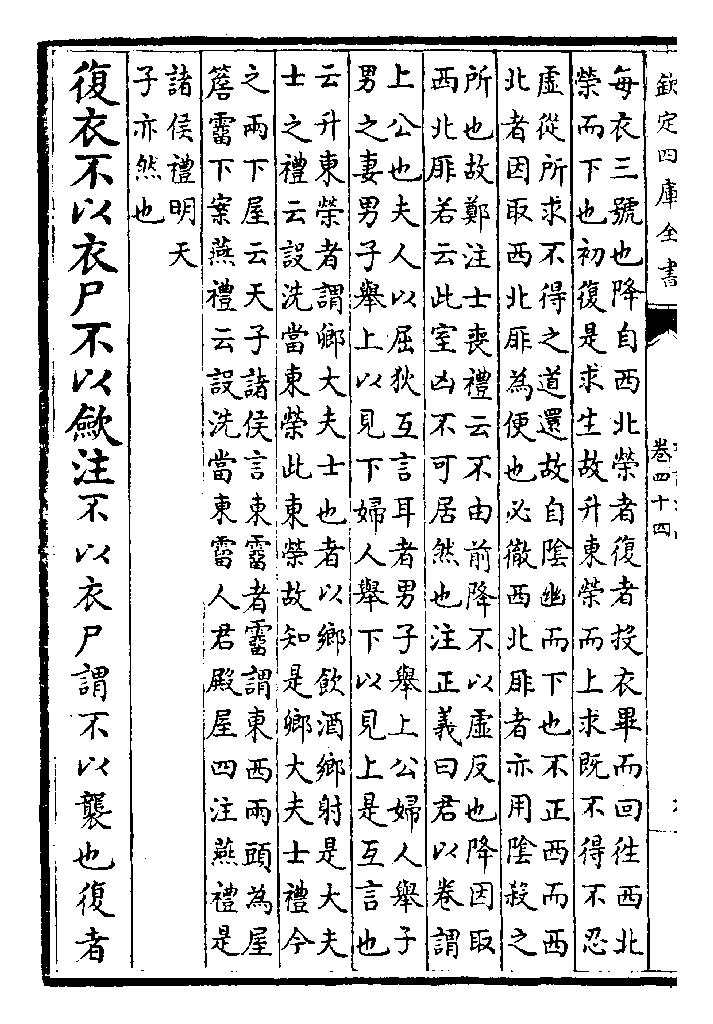 欽定四庫全書
卷四十四
每衣三號也降自西北榮者復者投衣畢而回往西北
榮而下也初復是求生故升東榮而上求既不得不忍
虛從所求不得之道還故自陰幽而下也不正西而西
北者因取西北厞為便也必徹西北厞者亦用陰殺之
所也故鄭注士喪禮云不由前降不以虛反也降因取
西北厞若云此室凶不可居然也注正義曰君以卷謂
上公也夫人以屈狄互言耳者男子舉上公婦人舉子
男之妻男子舉上以見下婦人舉下以見上是互言也
云升東榮者謂卿大夫士也者以鄉飲酒鄉射是大夫
士之禮云設洗當東榮此東榮故知是卿大夫士禮今
之兩下屋云天子諸侯言東霤者霤謂東西兩頭為屋
簷霤下案燕禮云設洗當東霤人君殿屋四注燕禮是
諸侯禮明天
子亦然也
復衣不以衣尸不以歛注不以衣尸謂不以襲也復者